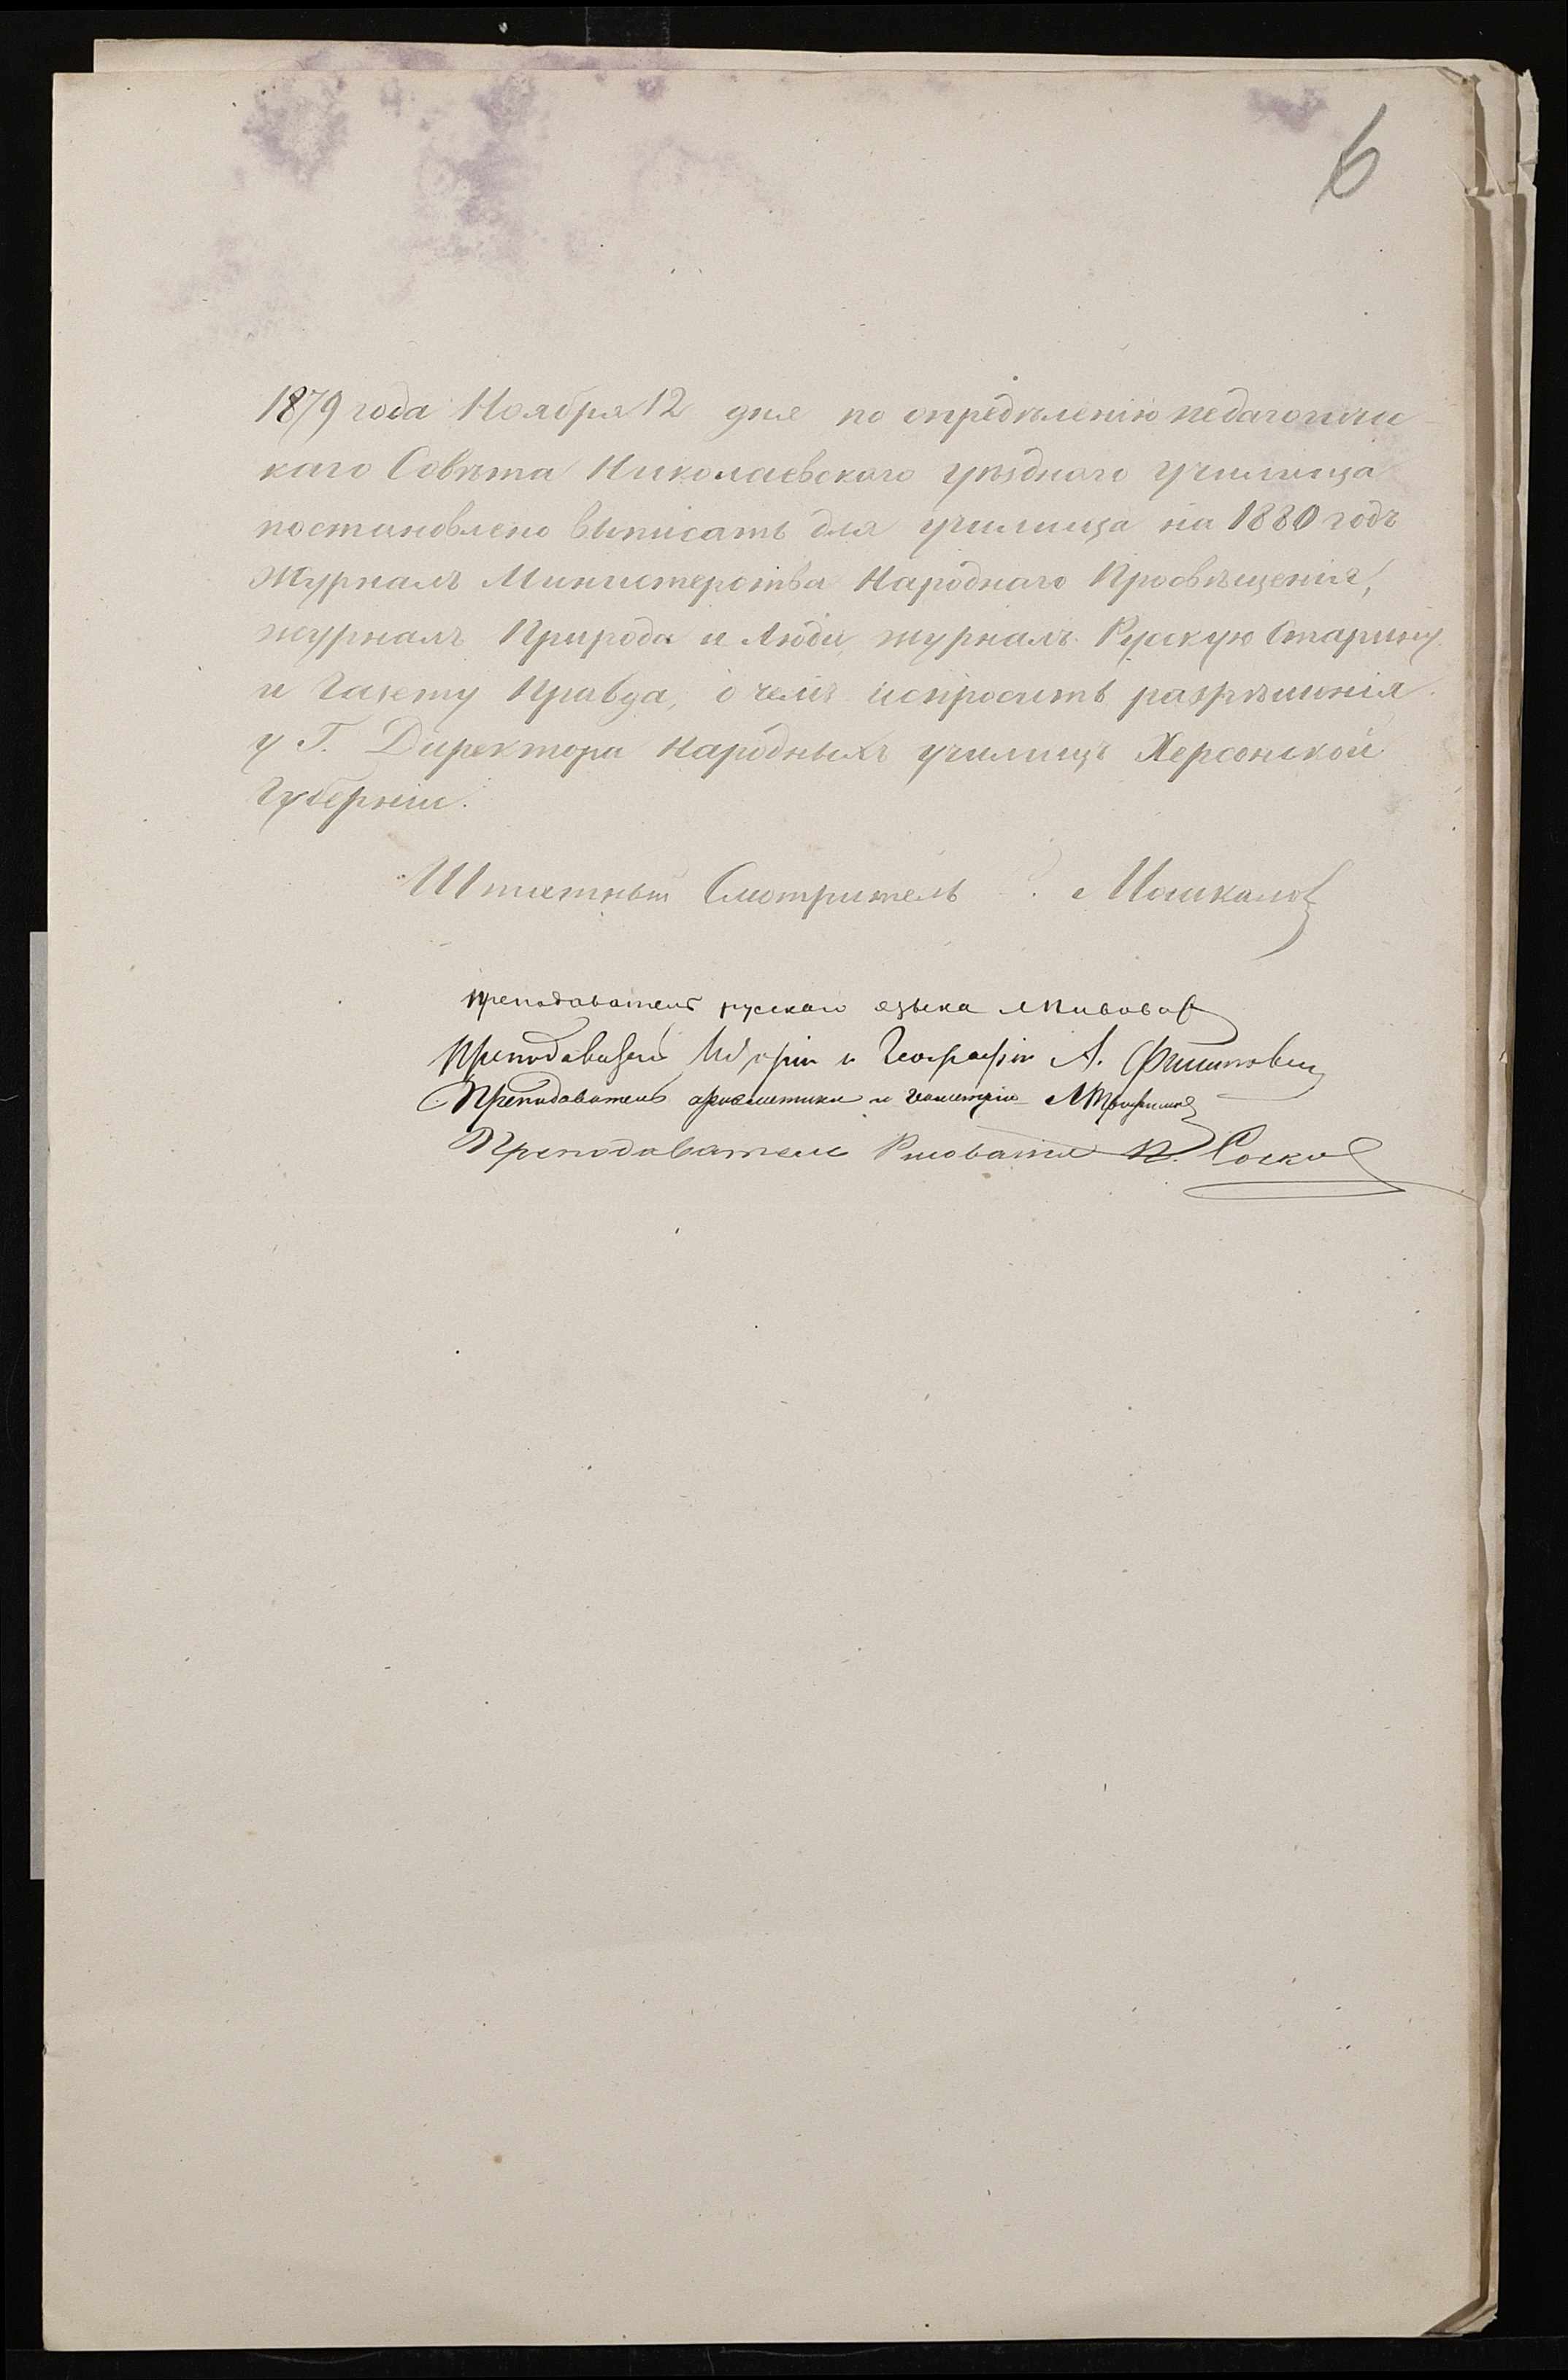 6
1879 года Ноября 12 дня по опредѣленію педагогичес
каго Совѣта Николаевского уѣзднаго училища
постановлено выписать для училища на 1880 годъ
Журналъ Министерства Народнаго Просвѣщенія,
журналъ Природа и Люди, журналъ Русскую Старину
и Газету Правда, о чемъ испросить разрѣшенія
у Г. Директора Народныхъ училищъ Херсонской
Губерніи.
Штатный Смотритель Мошкалов
Преподаватель русскаго языка
Преподаватель Исторіи и Географіи А.
Преподаватель ариѳметики и геометріи
Преподаватель Рисованія